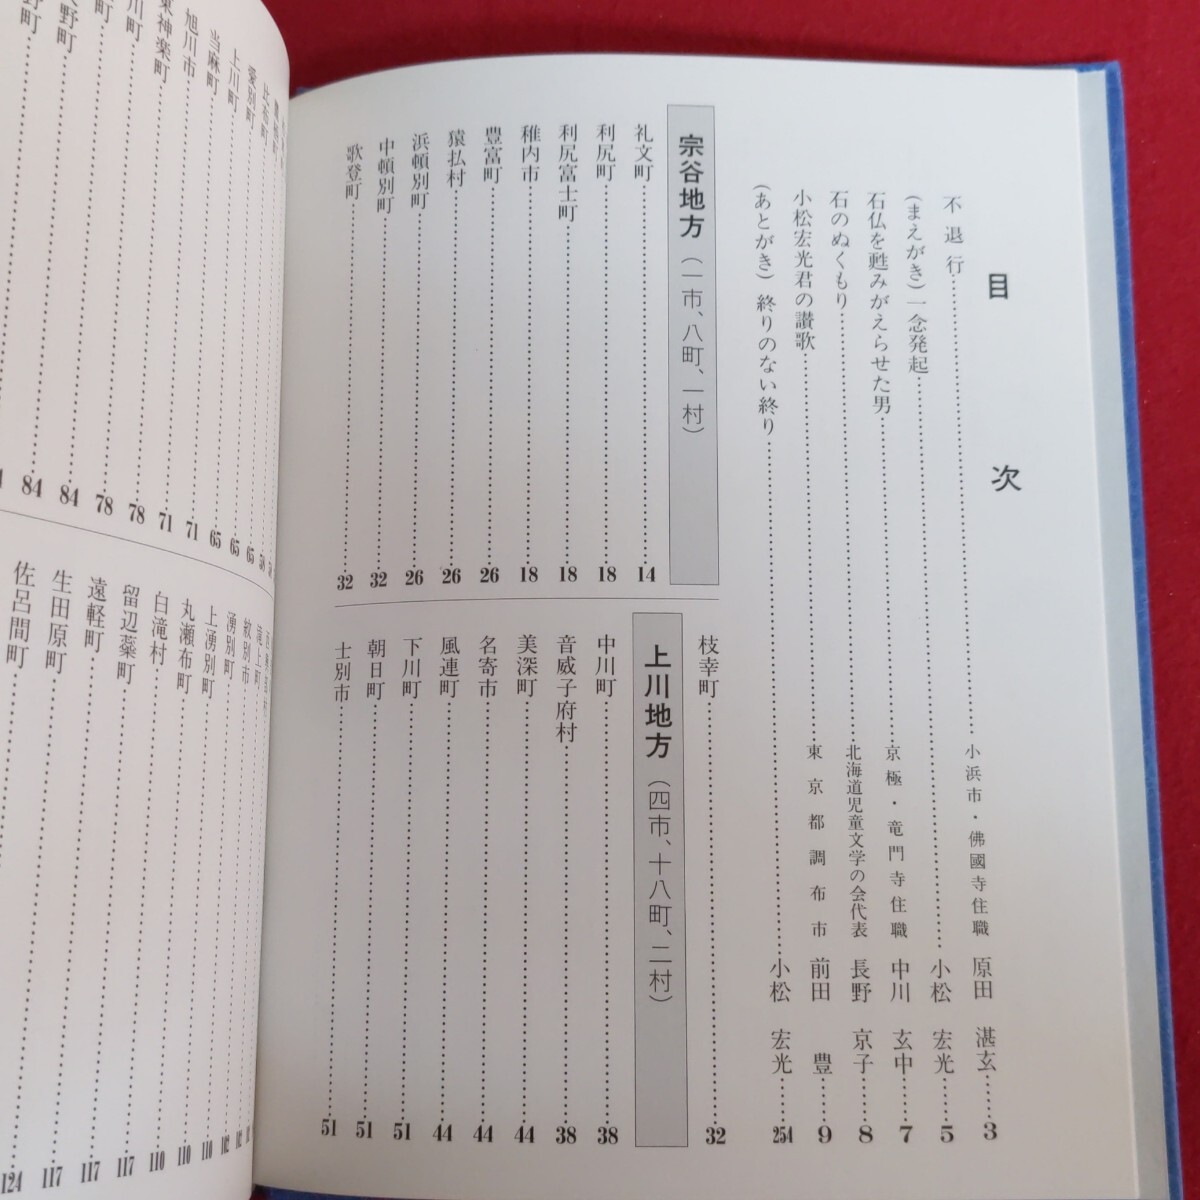 目次
不退行 小浜市・佛國寺住職 原田 湛玄 3
(まえがき) 一念発起 小松 宏光 5
石仏を甦みがえらせた男 京極・竜門寺住職 中川 玄中 7
石のぬくもり 北海道児童文学の会代表 長野 京子 8
小松宏光君の讃歌 東京都調布市 前田 豊 9
(あとがき) 終りのない終り 小松 宏光 254
宗谷地方 (一市、八町、一村)
礼文町 14
利尻町 18
利尻富士町 18
稚内市 18
豊富町 26
猿払村 26
浜頓別町 26
中頓別町 32
歌登町 32
枝幸町 32
上川地方 (四市、十八町、二村)
中川町 38
音威子府村 38
美深町 44
名寄市 44
風連町 44
下川町 51
朝日町 51
士別市 51
愛別町 65
上川町 65
当麻町 65
旭川市 71
東神楽町 71
川町 78
町 78
野町 84
野町 84
滝上町
紋別市
湧別町 102
上湧別町 110
丸瀬布町 110
白滝村 110
留辺蘂町 117
遠軽町 117
生田原町 117
佐呂間町 124